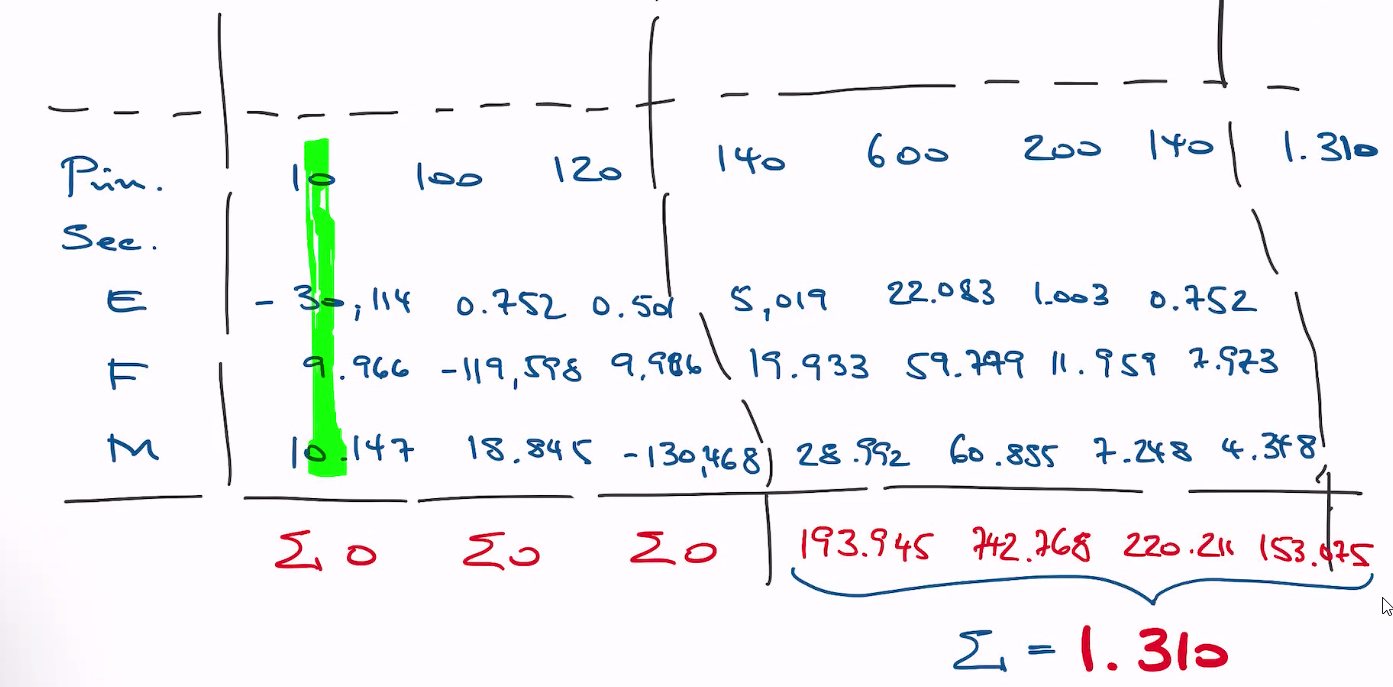 Prim. 10 100 120 140 600 200 140 1.310
Sec.
E - 30,114 0.752 0.501 5,019 22.083 1.003 0.752
F 9.966 -119,598 9,986 19.933 59.799 11.959 7.973
M 10.147 18.845 -130,468 28.992 60.885 7.248 4.348
Σ 0 Σ0 Σ0 193.945 742.768 220.211 153.075
Σ = 1.310